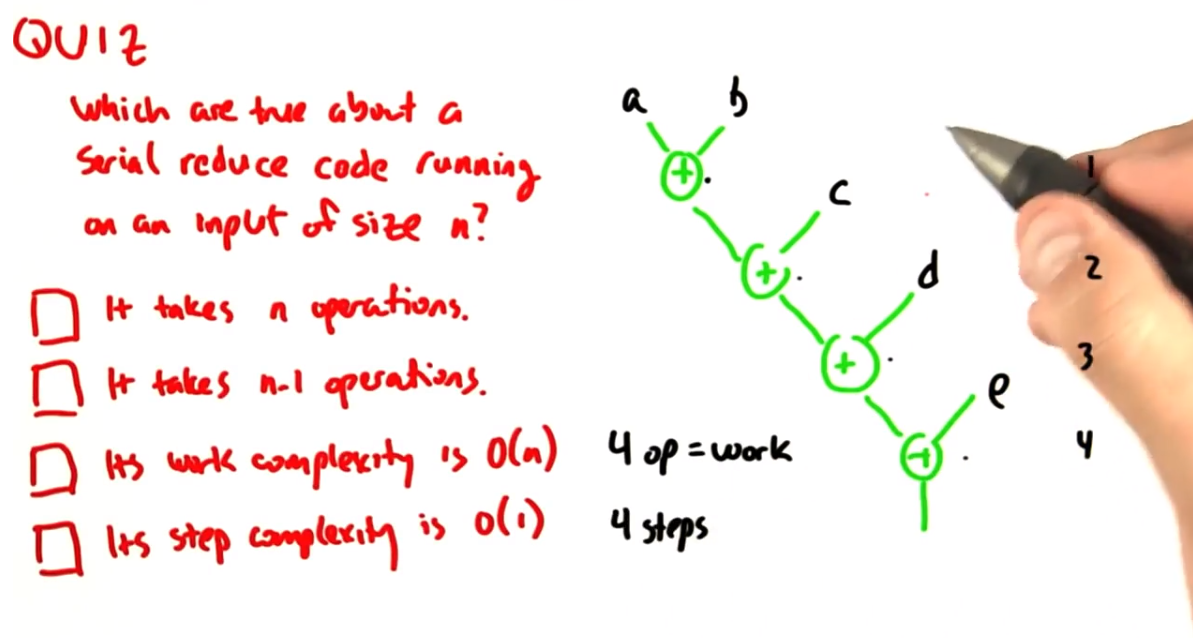 QUIZ
Which are true about a
serial reduce code running
on an input of size n?
It takes n operations.
It takes n-1 operations.
Its work complexity is O(n)
Its step complexity is O(1)
a b
+
c
+
d
+
e
+
4 op = work
4 steps
1
2
3
4